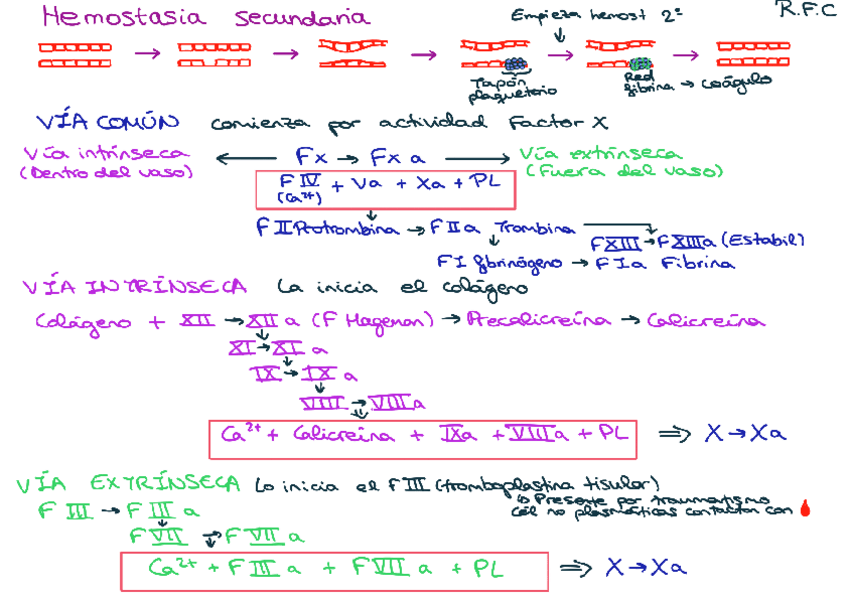 Hemostasia secundaria
R.F.C
Empieza hemost 2ª
Tapón plaquetario
Red fibrina → coágulo
VÍA COMÚN comienza por actividad Factor X
Vía intrínseca (Dentro del vaso) ← Fx → Fx a → Vía extrínseca (Fuera del vaso)
F IV + Va + Xa + PL
(Ca²⁺)
F II Protrombina → F II a Trombina
F XIII → F XIII a (Estabil)
F I fibrinógeno → F I a Fibrina
VÍA INTRÍNSECA La inicia el colágeno
Colágeno + XII → XII a (F Hageman) → Precalicreína → Calicreína
XI → XI a
IX → IX a
VIII → VIII a
Ca²⁺ + Calicreína + IXa + VIIIa + PL ⇒ X → Xa
VÍA EXTRÍNSECA Lo inicia el F III (tromboplastina tisular)
↳ Presente por traumatismo
cél no plasmáticas contactan con
F III → F III a
F VII → F VII a
Ca²⁺ + F III a + F VII a + PL ⇒ X → Xa